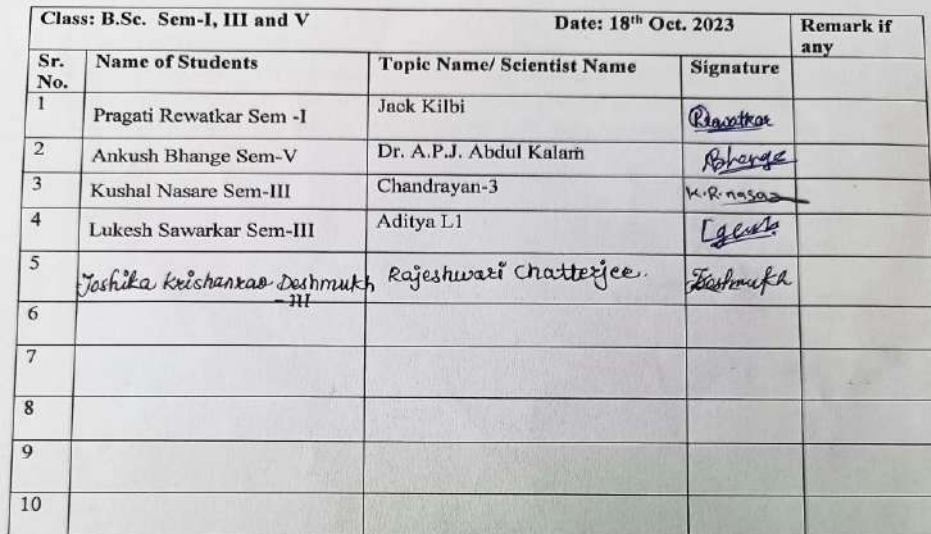 Class: B.Sc. Sem-I, III and V Date: 18th Oct. 2023 Remark if any
Sr. No. Name of Students Topic Name/ Scientist Name Signature
1 Pragati Rewatkar Sem -I Jack Kilbi Rewatkar
2 Ankush Bhange Sem-V Dr. A.P.J. Abdul Kalam Bhange
3 Kushal Nasare Sem-III Chandrayan-3 K.R.nasare
4 Lukesh Sawarkar Sem-III Aditya L1
5 Joshika Krishanrao Deshmukh Rajeshwari Chatterjee. Deshmukh
-III
6
7
8
9
10